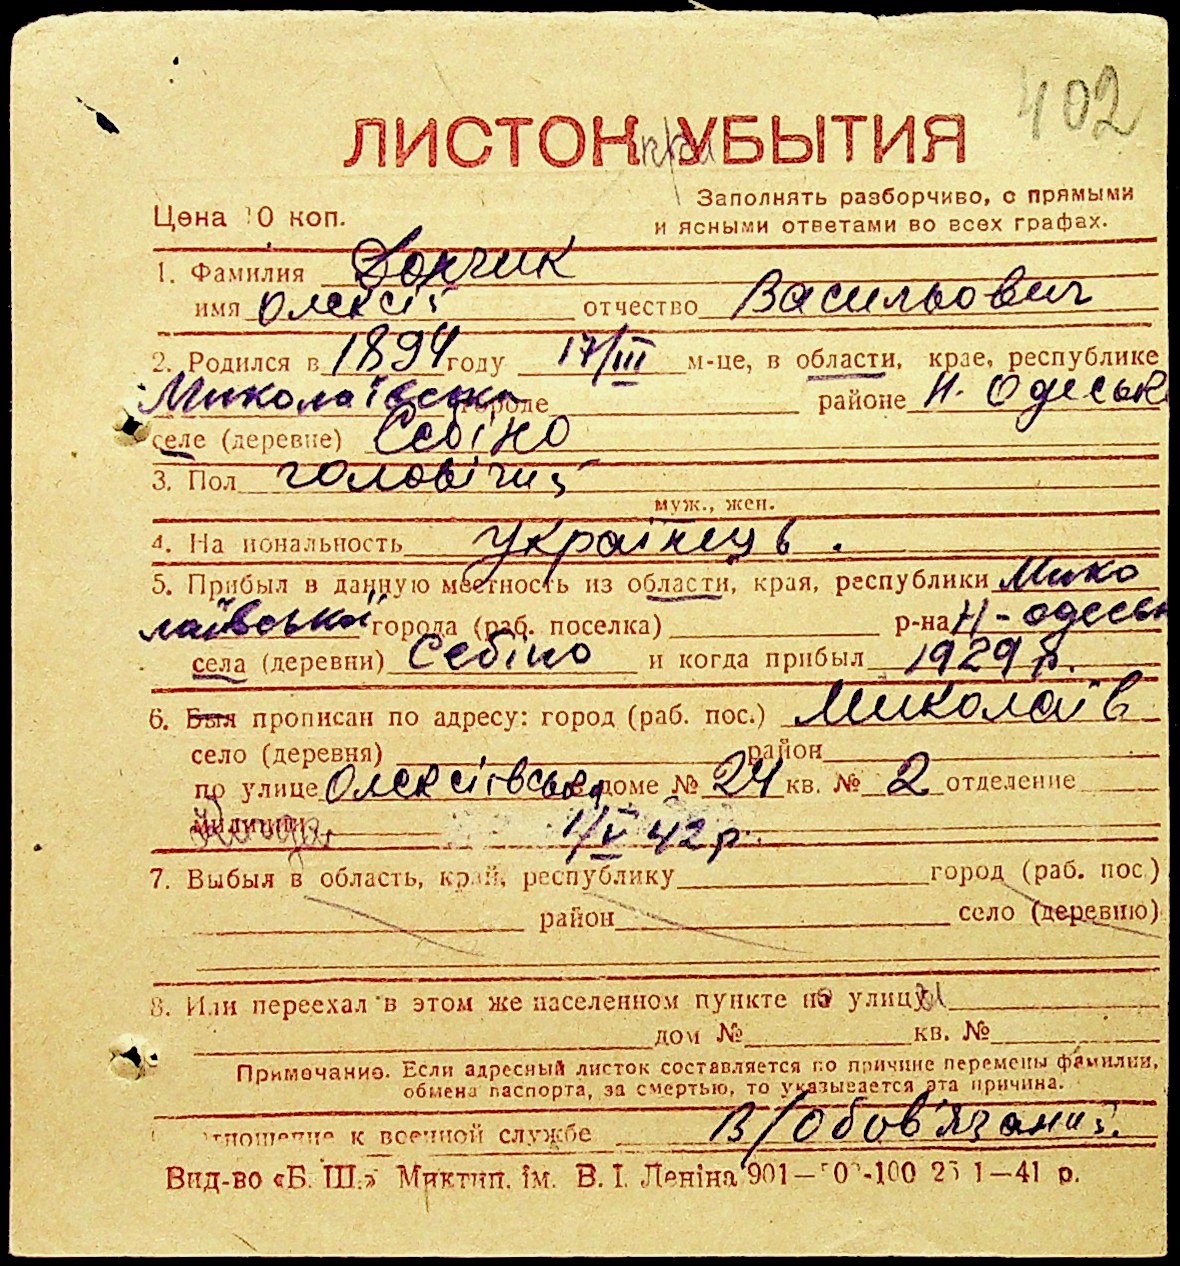 402
ЛИСТОК УБЫТИЯ
Заполнять разборчиво, с прямыми
Цена 10 коп. и ясными ответами во всех графах.
1. Фамилия Дончик
имя Олексій отчество Васильович
2. Родился в 1894 году 17/III м-це, в области, крае, республике
Миколаївська городе районе Н. Одеськ
селе (деревне) Себіно
3. Пол чоловічий
муж., жен.
4. Национальность Українець.
5. Прибыл в данную местность из области, края, республики Мико
лаївської города (раб. поселка) р-на Н-Одеськ
села (деревни) Себіно и когда прибыл 1929 р.
6. Был прописан по адресу: город (раб. пос.) Миколаїв
село (деревня) район
по улице Олексіївська доме № 24 кв. № 2 отделение
милиции 1/V 42 р.
7. Выбыл в область, край, республику город (раб. пос.)
район село (деревню)
8. Или переехал в этом же населенном пункте на улицу
дом № кв. №
Примечание. Если адресный листок составляется по причине перемены фамилии,
обмена паспорта, за смертью, то указывается эта причина.
отношение к военной службе В/Обов'язаний.
Вид-во «Б. Ш.» Миктип. ім. В. І. Леніна 901— -100 1—41 р.